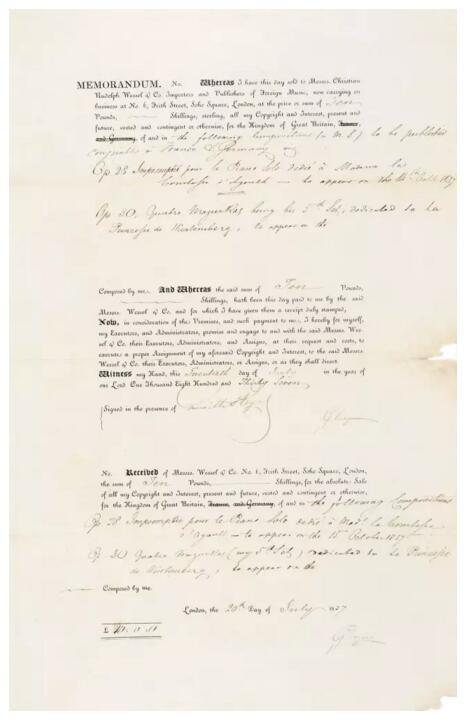 MEMORANDUM, No. Whereas I have this day sold to Messrs. Christian
Rudolph Wessel & Co. Importers and Publishers of Foreign Music, now carrying on
business at No. 6, Frith Street, Soho Square, London, at the price or sum of Ten
Pounds, Shillings, sterling, all my Copyright and Interest, present and
future, vested and contingent or otherwise, for the Kingdom of Great Britain, France,
and Germany, of and in the following Compositions (in M.S.) to be published
in France & Germany
Op 28 Impromptu pour le Piano Solo dedié à Madame la
Comtesse d'Agoult — to appear on the 15th Octob. 1837
Op 30. Quatre Mazurkas being his 5th Set, dedicated to la
Princesse de Wurtemberg, to appear on the
Composed by me. And Whereas the said sum of Ten Pounds,
Shillings, hath been this day paid to me by the said
Messrs. Wessel & Co. and for which I have given them a receipt duly stamped,
Now, in consideration of the Premises, and such payment to me, I hereby for myself,
my Executors, and Administrators, promise and engage to and with the said Messrs. Wes-
sel & Co. their Executors, Administrators, and Assigns, at their request and costs, to
execute a proper Assignment of my aforesaid Copyright and Interest, to the said Messrs.
Wessel & Co. their Executors, Administrators, or Assigns, or as they shall direct.
Witness my Hand, this Twentieth day of July in the year of
our Lord One Thousand Eight Hundred and Thirty Seven
Signed in the presence of
No. Received of Messrs. Wessel & Co. No. 6, Frith Street, Soho Square, London,
the sum of Ten Pounds, Shillings, for the absolute Sale
of all my Copyright and Interest, present and future, vested and contingent or otherwise,
for the Kingdom of Great Britain, France, and Germany, of and in the following Compositions
Op 28 Impromptu pour le Piano Solo dedié à Mad. la Comtesse
d'Agoult — to appear on the 15th October 1837
Op 30 Quatre Mazurkas (my 5th Set) dedicated to la Princesse
de Wurtemberg, to appear on the
Composed by me.
London, the 20th Day of July 1837
£